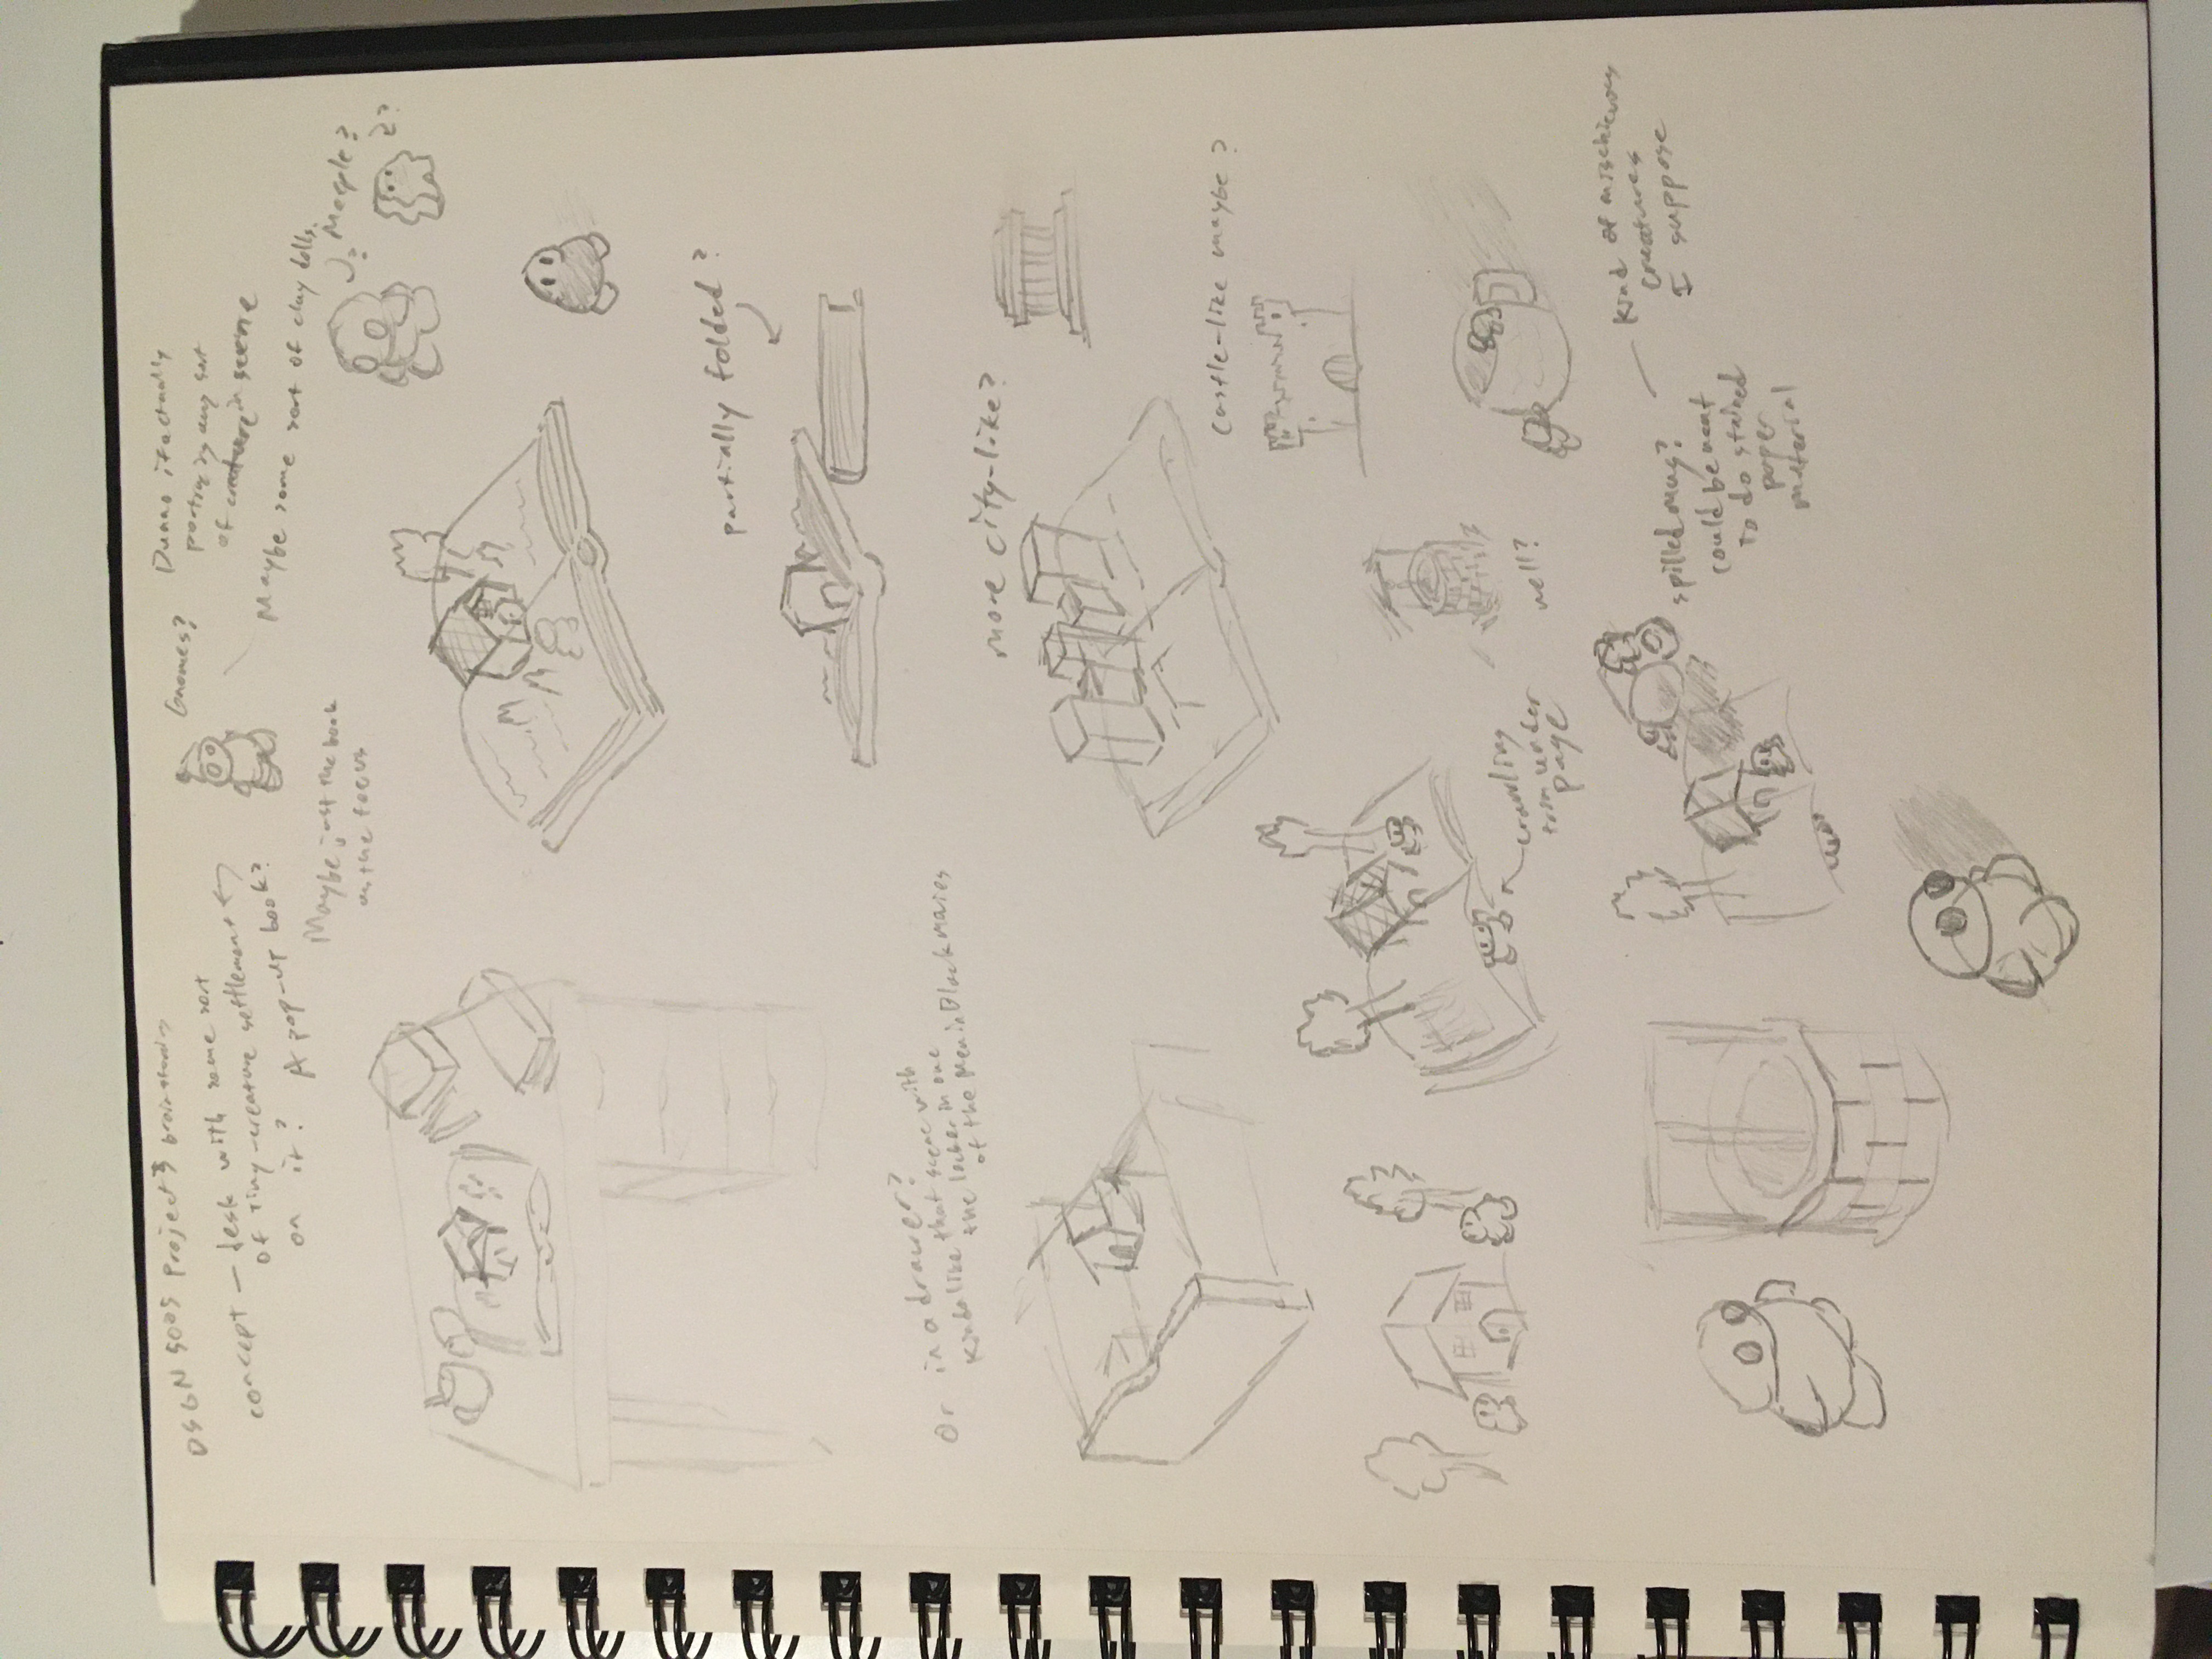 DSGN 5005 Project 3 brainstorming
concept — desk with some sort
of tiny-creature settlement
on it? A pop-up book?
Maybe just the book
as the focus
Gnomes?
Dunno if actually
portraying any sort
of creature in scene
Maybe some sort of clay dolls.
?
Meeple?
?
partially folded?
Or in a drawer?
Kinda like that scene with
the locker in one
of the Men in Black movies
more city-like?
castle-like maybe?
crawling
from under
page
well?
spilled mug?
could be neat
to do stained
paper
material
Kind of mischievous
creatures
I suppose